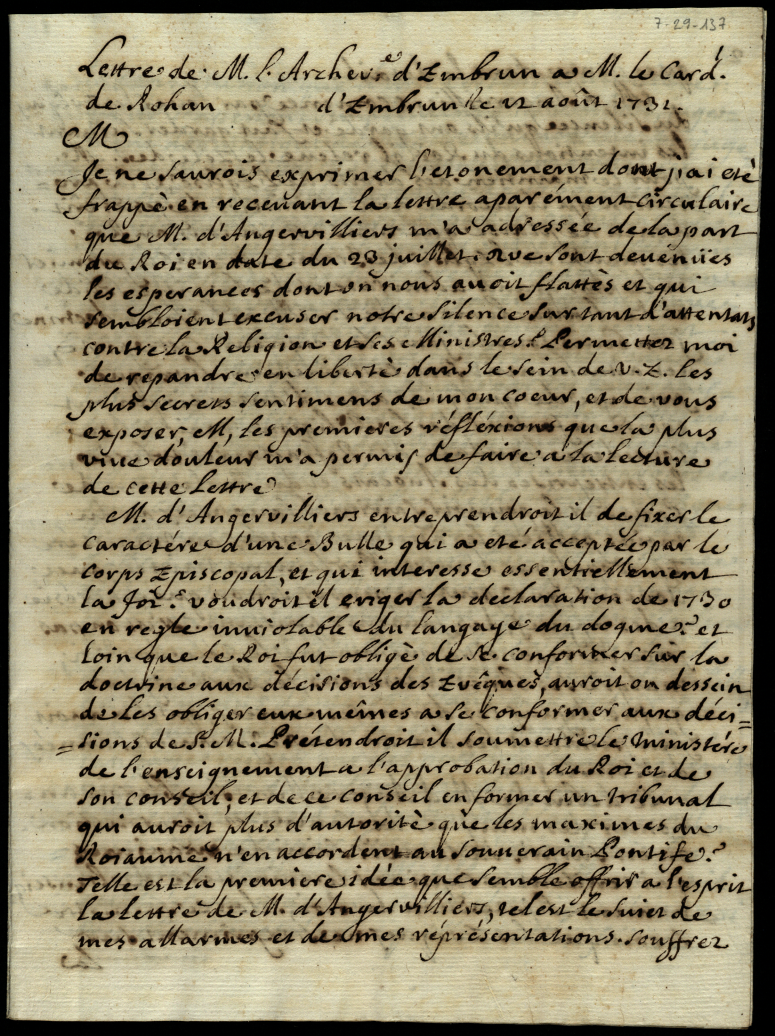 7-29-137
Lettre de M. l. Archev.e d'Embrun a M. le Card.l
de Rohan d'Embrun le 12 août 1731.
M
Je ne saurois exprimer l'etonement dont j'ai eté
frappè en recevant la lettre aparément circulaire
que M. d'Angervilliers m'a adressée de la part
du Roi en date du 23 juillet. que sont devenües
les esperances dont on nous avoit flattès et qui
sembloient excuser notre silence sur tant d'attentats
contre la Religion et ses Ministres? Permettez moi
de repandre en libertè dans le sein de V. E. les
plus secrets sentimens de mon coeur, et de vous
exposer, M, les premieres réfléxions que la plus
vive douleur m'a permis de faire a la lecture
de cette lettre
M. d'Angervilliers entreprendroit il de fixer le
caractére d'une Bulle qui a eté acceptée par le
corps Episcopal, et qui interesse essentiellement
la foi? voudroit il eriger la declaration de 1730
en regle inviolable du langage du dogme? et
loin que le Roi fut obligè de se conformer sur la
doctrine aux décisions des Evêques, auroit on dessein
de les obliger eux mêmes a se conformer aux déci=
=sions de S. M. Prétendroit il soumettre le ministére
de l'enseignement a l'approbation du Roi et de
son conseil, et de ce conseil en former un tribunal
qui auroit plus d'autoritè que les maximes du
Roiaume n'en accordent au souverain Pontife?
Telle est la premiere idée que semble offrir a l'esprit
la lettre de M. d'Angervilliers, tel est le sujet de
mes allarmes et de mes réprésentations. souffrez